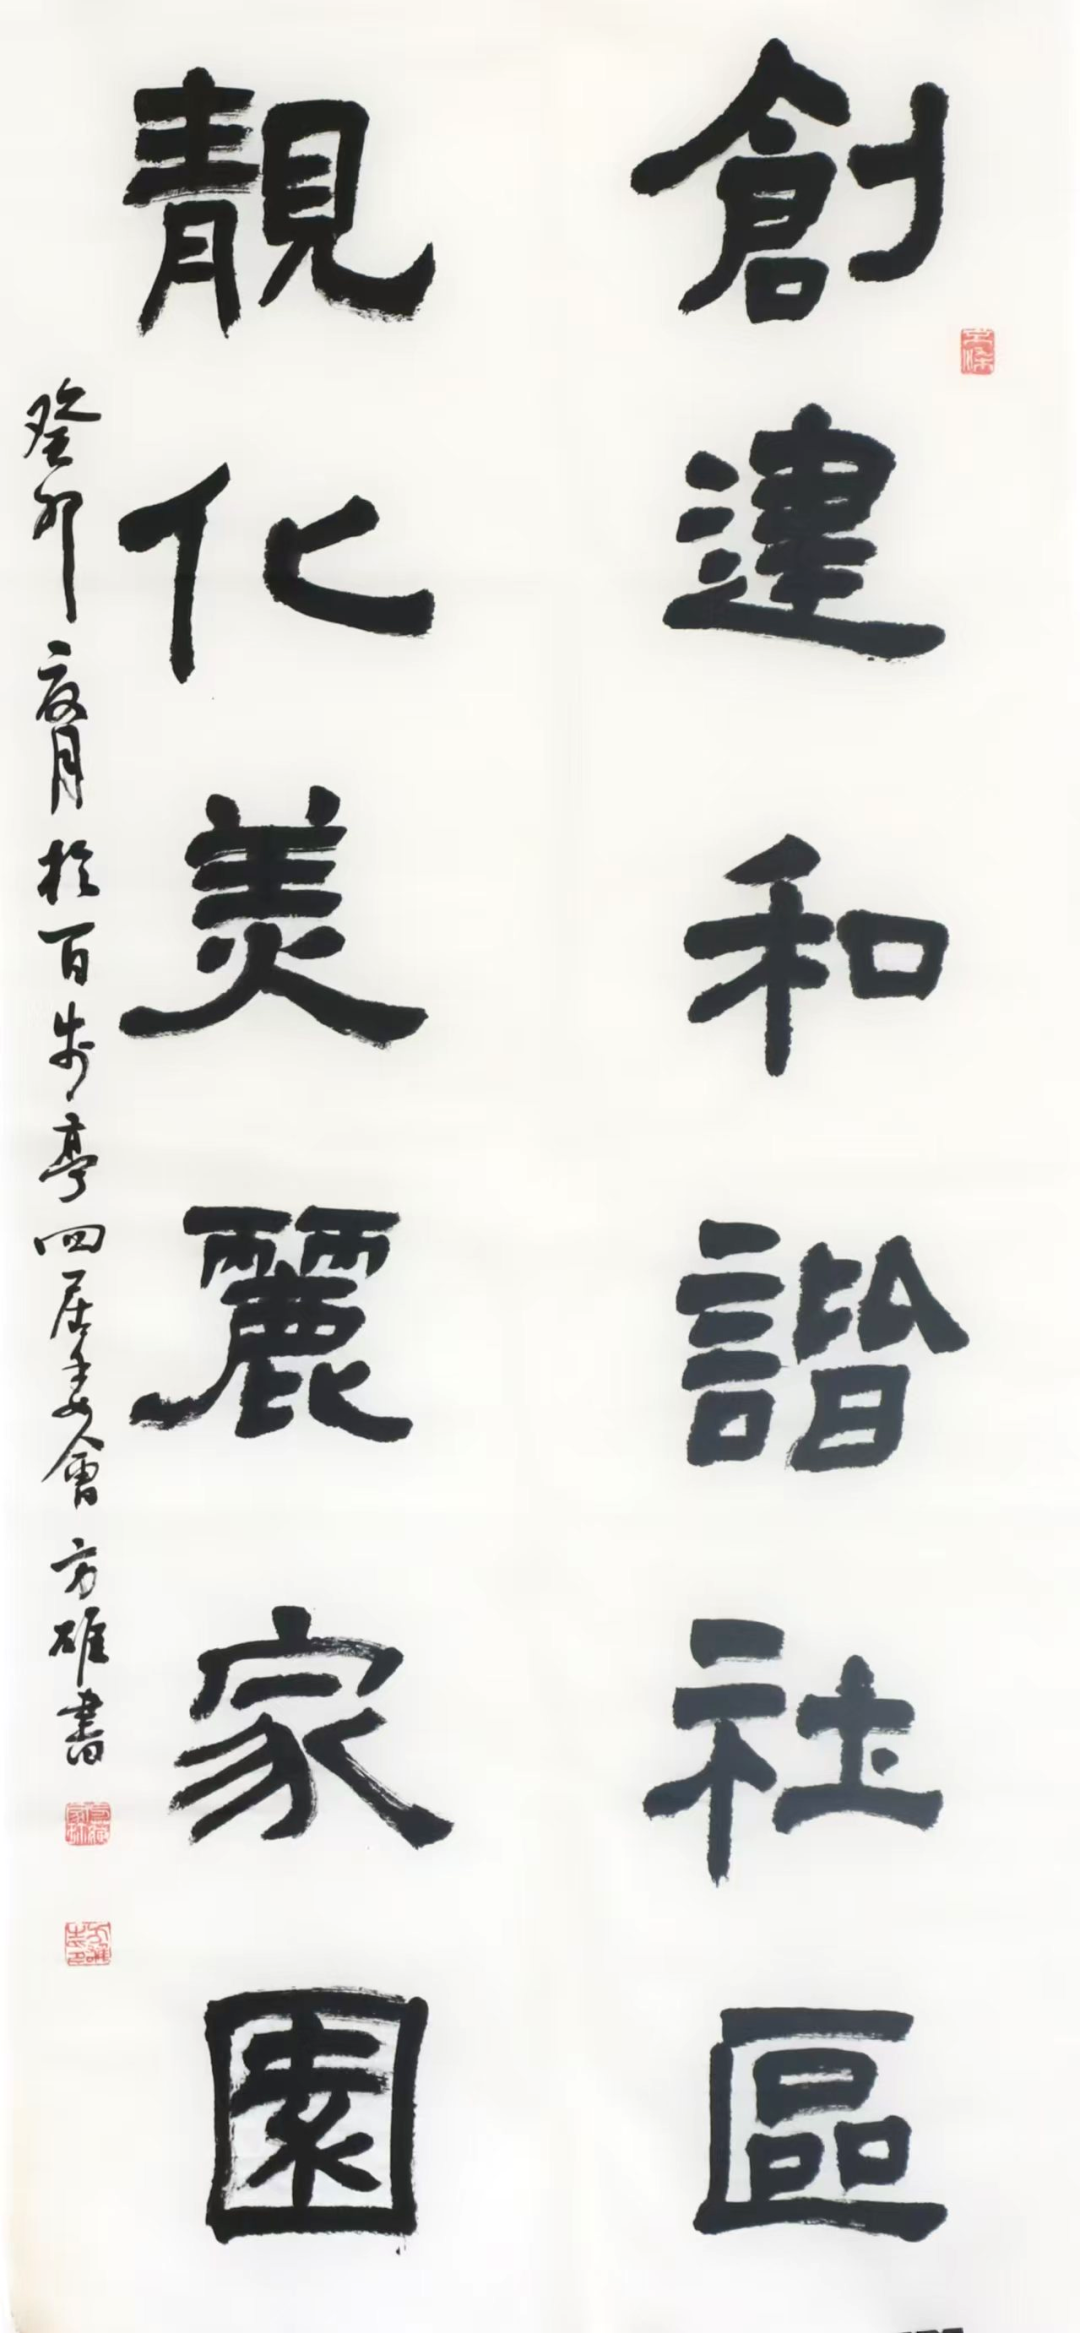 創建和諧社區
靚化美麗家園
癸卯夏月於百步亭四居委會方雄書